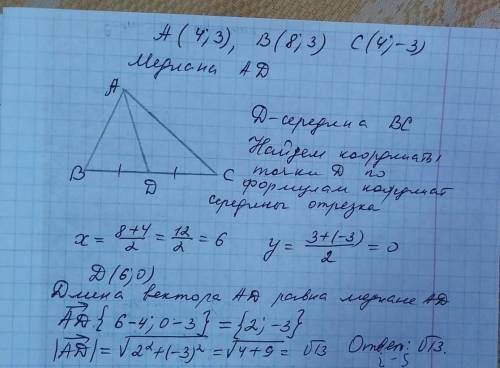 A(4;3), B(8;3) C(4;-3)
Медиана AD
A
B
D
C
D-середина BC
Найдем координаты
точки D по
формулам координат
середины отрезка
x = 8+4/2 = 12/2 = 6 y = 3+(-3)/2 = 0
D(6;0)
Длина вектора AD равна медиане AD
AD{6-4;0-3} = {2;-3}
|AD| = √2²+(-3)² = √4+9 = √13 Ответ: √13.